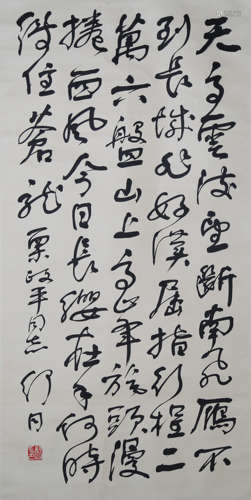 天高雲淡望斷南飛雁不
到長城非好漢屈指行程二
萬六盤山上高峯旄頭漫
捲西風今日長纓在手何時
縛住蒼龍 栗政平同志 舒同